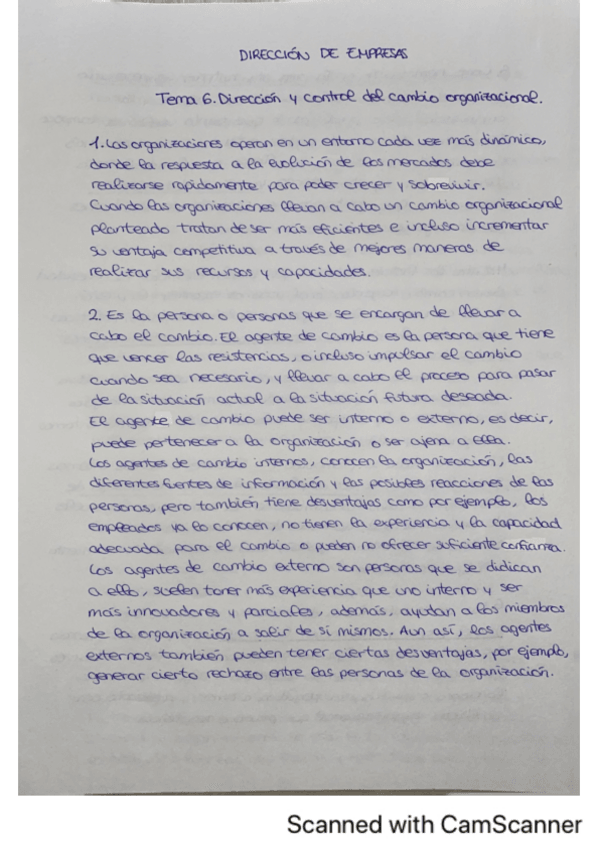 DIRECCIÓN DE EMPRESAS
Tema 6. Dirección y control del cambio organizacional.
1. Las organizaciones operan en un entorno cada vez más dinámico,
donde la respuesta a la evolución de los mercados debe
realizarse rapidamente para poder crecer y sobrevivir.
Cuando las organizaciones llevan a cabo un cambio organizacional
planteado tratan de ser más eficientes e incluso incrementar
su ventaja competitiva a través de mejores maneras de
realizar sus recursos y capacidades.
2. Es la persona o personas que se encargan de llevar a
cabo el cambio. El agente de cambio es la persona que tiene
que vencer las resistencias, o incluso impulsar el cambio
cuando sea necesario, y llevar a cabo el proceso para pasar
de la situación actual a la situación futura deseada.
El agente de cambio puede ser interno o externo, es decir,
puede pertenecer a la organización o ser ajena a ella.
Los agentes de cambio internos, conocen la organización, las
diferentes fuentes de información y las posibles reacciones de las
personas, pero también, tiene desventajas como por ejemplo, los
empleados ya lo conocen, no tienen la experiencia y la capacidad
adecuada para el cambio o pueden no ofrecer suficiente confianza.
Los agentes de cambio externo son personas que se didican
a ello, suelen tener más experiencia que uno interno y ser
más innovadores y parciales, además, ayudan a los miembros
de la organización a salir de sí mismos. Aun así, los agentes
externos también pueden tener ciertas desventajas, por ejemplo,
generar cierto rechazo entre las personas de la organización.
Scanned with CamScanner